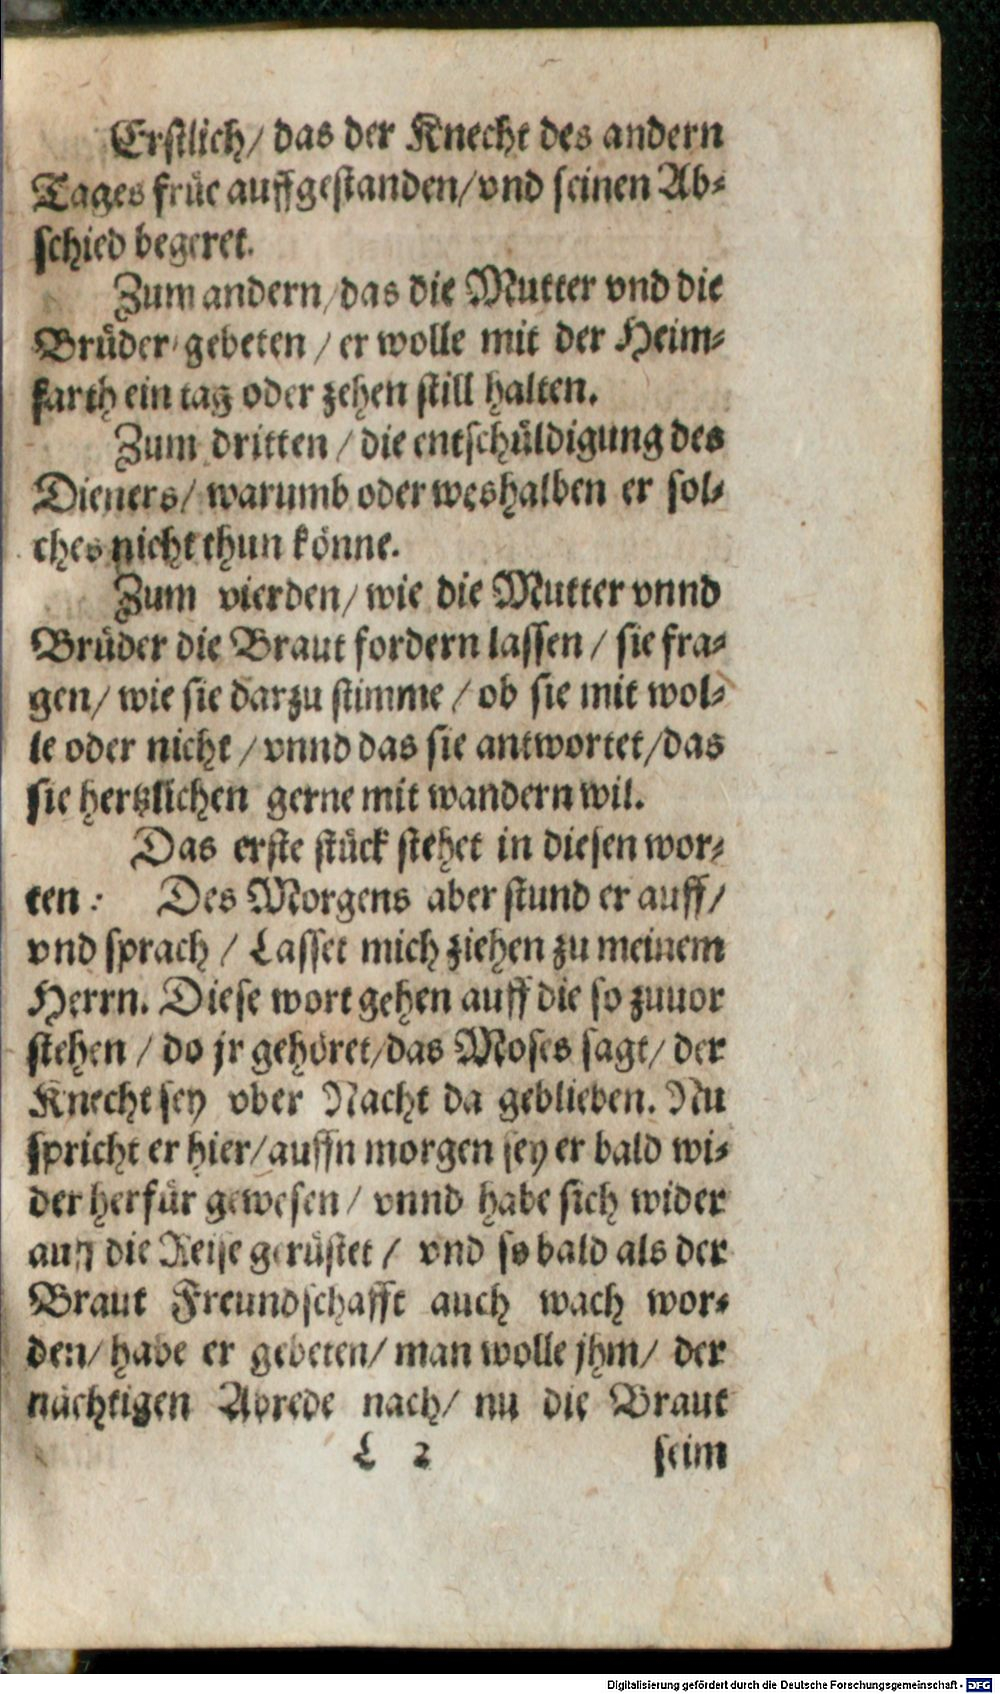 Erstlich/ das der Knecht des andern
Tages früe auffgestanden/vnd seinen Ab-
schied begeret.
Zum andern/das die Mutter vnd die
Brüder gebeten / er wolle mit der Heim-
farth ein tag oder zehen still halten.
Zum dritten / die entschüldigung des
Dieners/ warumb oder weshalben er sol-
ches nicht thun könne.
Zum vierden/ wie die Mutter vnnd
Brüder die Braut fordern lassen / sie fra-
gen/ wie sie darzu stimme / ob sie mit wol-
le oder nicht / vnnd das sie antwortet/das
sie hertzlichen gerne mit wandern wil.
Das erste stück stehet in diesen wor-
ten : Des Morgens aber stund er auff/
vnd sprach / Lasset mich ziehen zu meinem
Herrn. Diese wort gehen auff die so zuuor
stehen / do jr gehöret/das Moses sagt/ der
Knecht sey vber Nacht da geblieben. Nu
spricht er hier/auffn morgen sey er bald wi-
der herfür gewesen/ vnnd habe sich wider
auff die Reise gerüstet / vnd so bald als der
Braut Freundschafft auch wach wor-
den/ habe er gebeten/ man wolle jhm/ der
nächtigen Abrede nach/ nu die Braut
L 2 seim
Digitalisierung gefördert durch die Deutsche Forschungsgemeinschaft - DFG